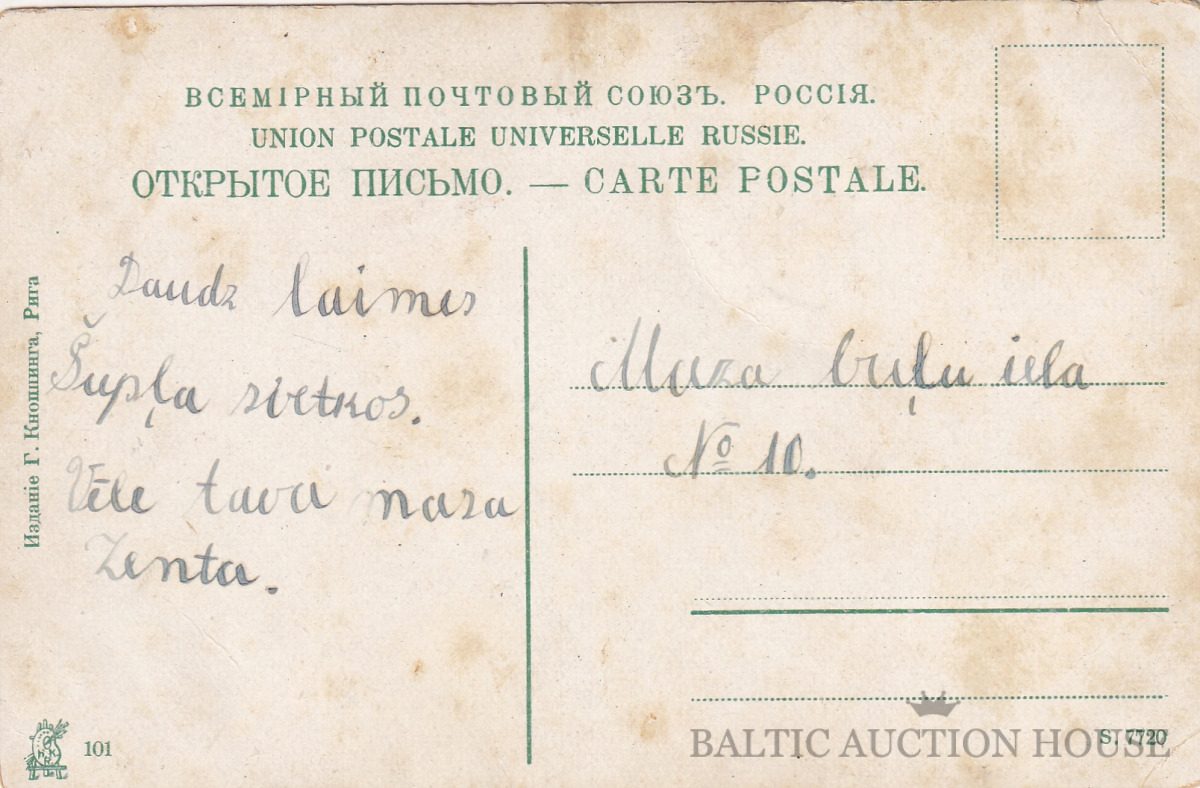 ВСЕМІРНЫЙ ПОЧТОВЫЙ СОЮЗЪ. РОССІЯ.
UNION POSTALE UNIVERSELLE RUSSIE.
ОТКРЫТОЕ ПИСЬМО. — CARTE POSTALE.
Изданіе Г. Кношинга, Рига
Daudz laimes
Šupļa svetkos.
Vēle tava maza
Zenta.
Maza buļu iela
No 10.
101
S. 7720
BALTIC AUCTION HOUSE